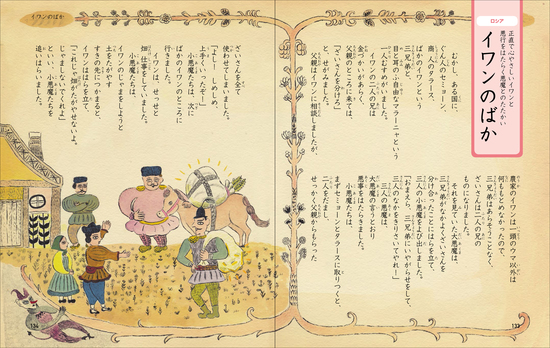 ロシア
正直で心やさしいイワンと
悪行をはたらく悪魔とのたたかい
イワンのばか
むかし、ある国に、
ぐん人のセミョーン、
商人のタラース、
ばかのイワンという
三兄弟と、
目と耳の不自由なマラーニャという
一人むすめがいました。
イワンの二人の兄は
金づかいがあらく、
父親のところに来ては、
「ざいさんを分けろ」
と、せがみました。
父親はイワンに相談しましたが、
農家のイワンは一頭のウマ以外は
何ももとめなかったので、
三兄弟はあらそうことなく、
ざいさんは二人の兄の
ものになりました。
それを見ていた大悪魔は、
三兄弟がなかよくざいさんを
分け合ったことにはらを立て、
三人の小悪魔をよび出しました。
「おまえら、三兄弟にいやがらせをして、
三人のなかを引きさいてやれ!」
三人の悪魔は、
大悪魔の言うとおり
悪事をはたらきました。
小悪魔たちは、
まずセミョーンとタラースに取りつくと、
二人をだまし、
せっかく父親からもらった
133
イワンのばか
ざいさんを全て
使わせてしまいました。
「よし! しめしめ、
上手くいったぞ!」
小悪魔たちは、次に
ばかのイワンのところに
行きました。
イワンは、せっせと
畑仕事をしていました。
小悪魔たちは、
イワンのじゃまをしようと
土をたがやす
すきの先につかまると、
イワンははらを立て、
「これじゃ畑がたがやせないよ。
じゃましないでくれよ」
といい、小悪魔たちを
追いはらいました。
134